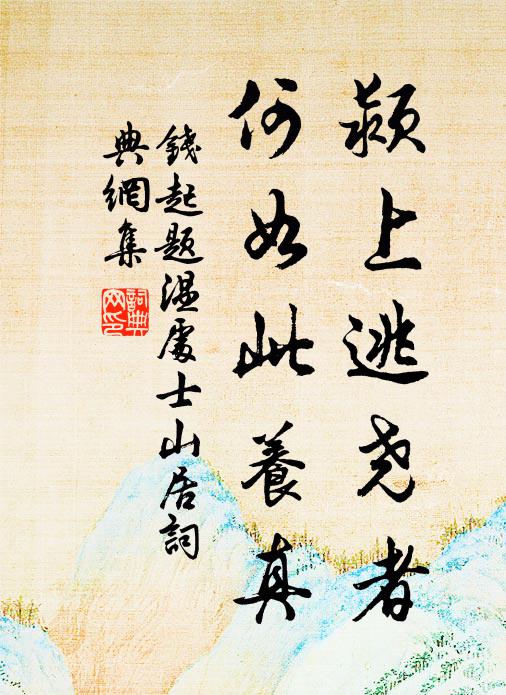 颍上逃尭者
何如此養真
錢起題温處士山居詞
典網集
詞典
网印